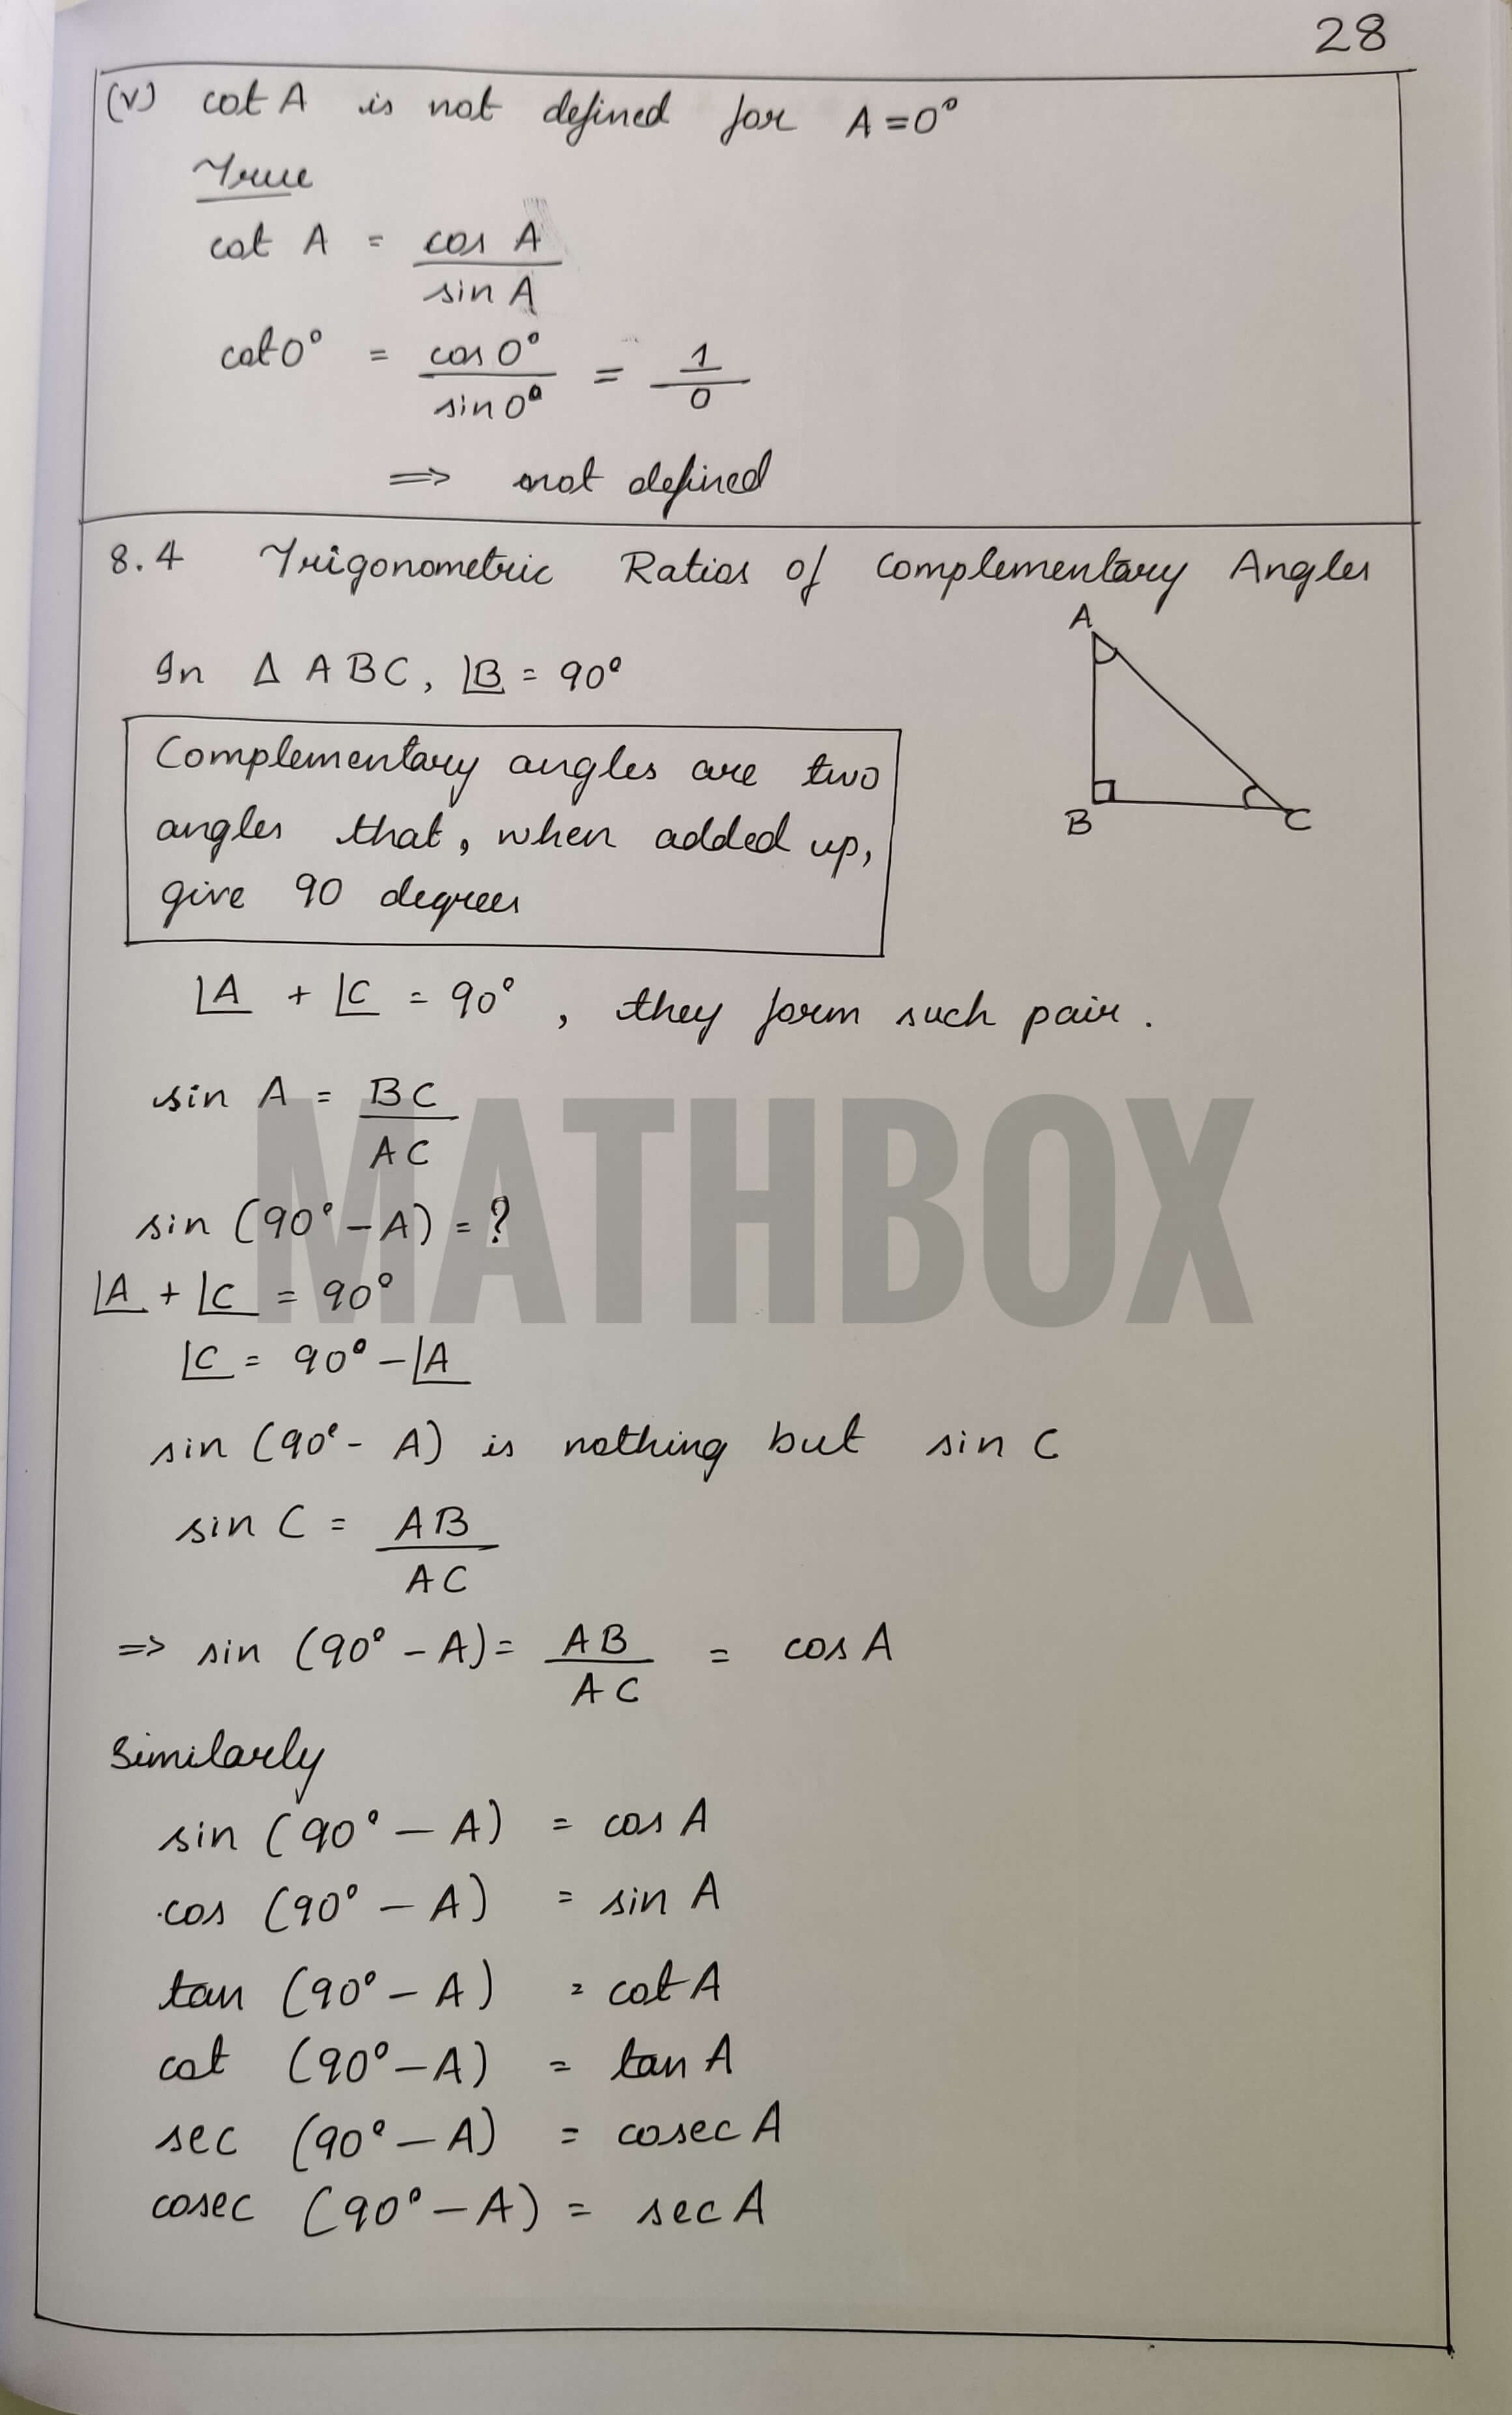 28
(v) cot A is not defined for A = 0°
True
cot A = cos A / sin A
cot 0° = cos 0° / sin 0° = 1 / 0
⇒ not defined
8.4 Trigonometric Ratios of Complementary Angles
In Δ ABC, ∠B = 90°
A
B
C
Complementary angles are two
angles that, when added up,
give 90 degrees
∠A + ∠C = 90°, they form such pair.
sin A = BC / AC
MATHBOX
sin (90° - A) = ?
∠A + ∠C = 90°
∠C = 90° - ∠A
sin (90° - A) is nothing but sin C
sin C = AB / AC
⇒ sin (90° - A) = AB / AC = cos A
Similarly
sin (90° - A) = cos A
cos (90° - A) = sin A
tan (90° - A) = cot A
cot (90° - A) = tan A
sec (90° - A) = cosec A
cosec (90° - A) = sec A